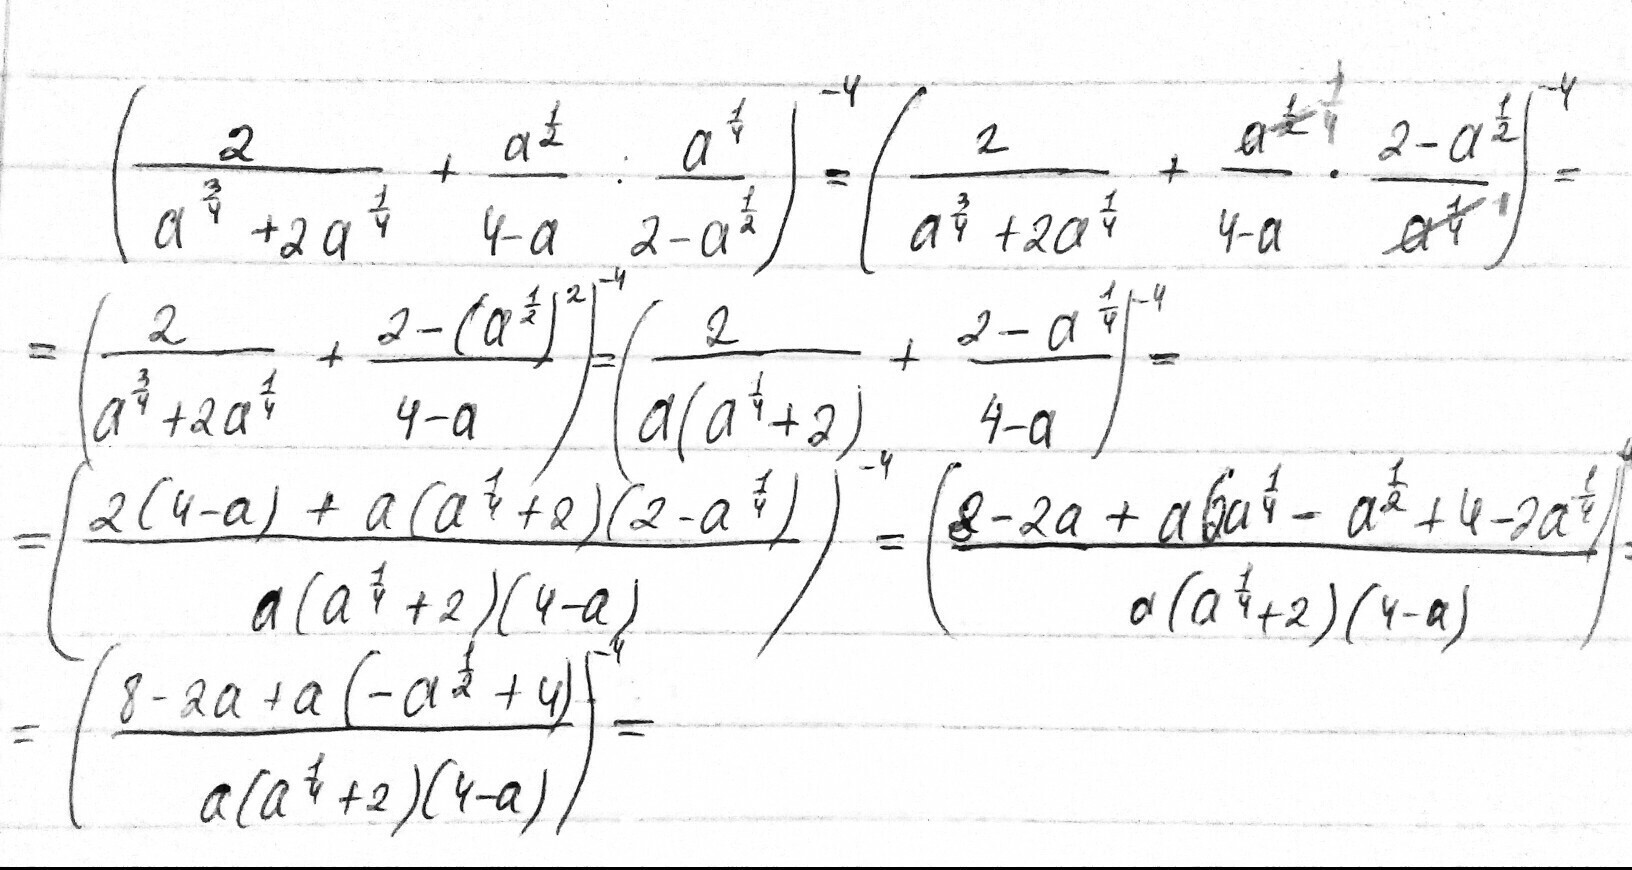 (2/(a^(3/4) + 2a^(1/4)) + a^(1/2)/(4-a) : a^(1/4)/(2-a^(1/2)))^(-4) = (2/(a^(3/4) + 2a^(1/4)) + a^(1/2) 1/4/(4-a) · (2-a^(1/2))/a^(1/4) 1)^(-4) =
= (2/(a^(3/4) + 2a^(1/4)) + (2-(a^(1/2))^2)/(4-a))^(-4) = (2/(a(a^(1/4)+2)) + (2-a^(1/4))/(4-a))^(-4) =
= ((2(4-a) + a(a^(1/4)+2)(2-a^(1/4)))/(a(a^(1/4)+2)(4-a)))^(-4) = ((8-2a + a(2a^(1/4) - a^(1/2) + 4 - 2a^(1/4)))/(a(a^(1/4)+2)(4-a)))^(-4) =
= ((8-2a+a(-a^(1/2)+4))/(a(a^(1/4)+2)(4-a)))^(-4) =